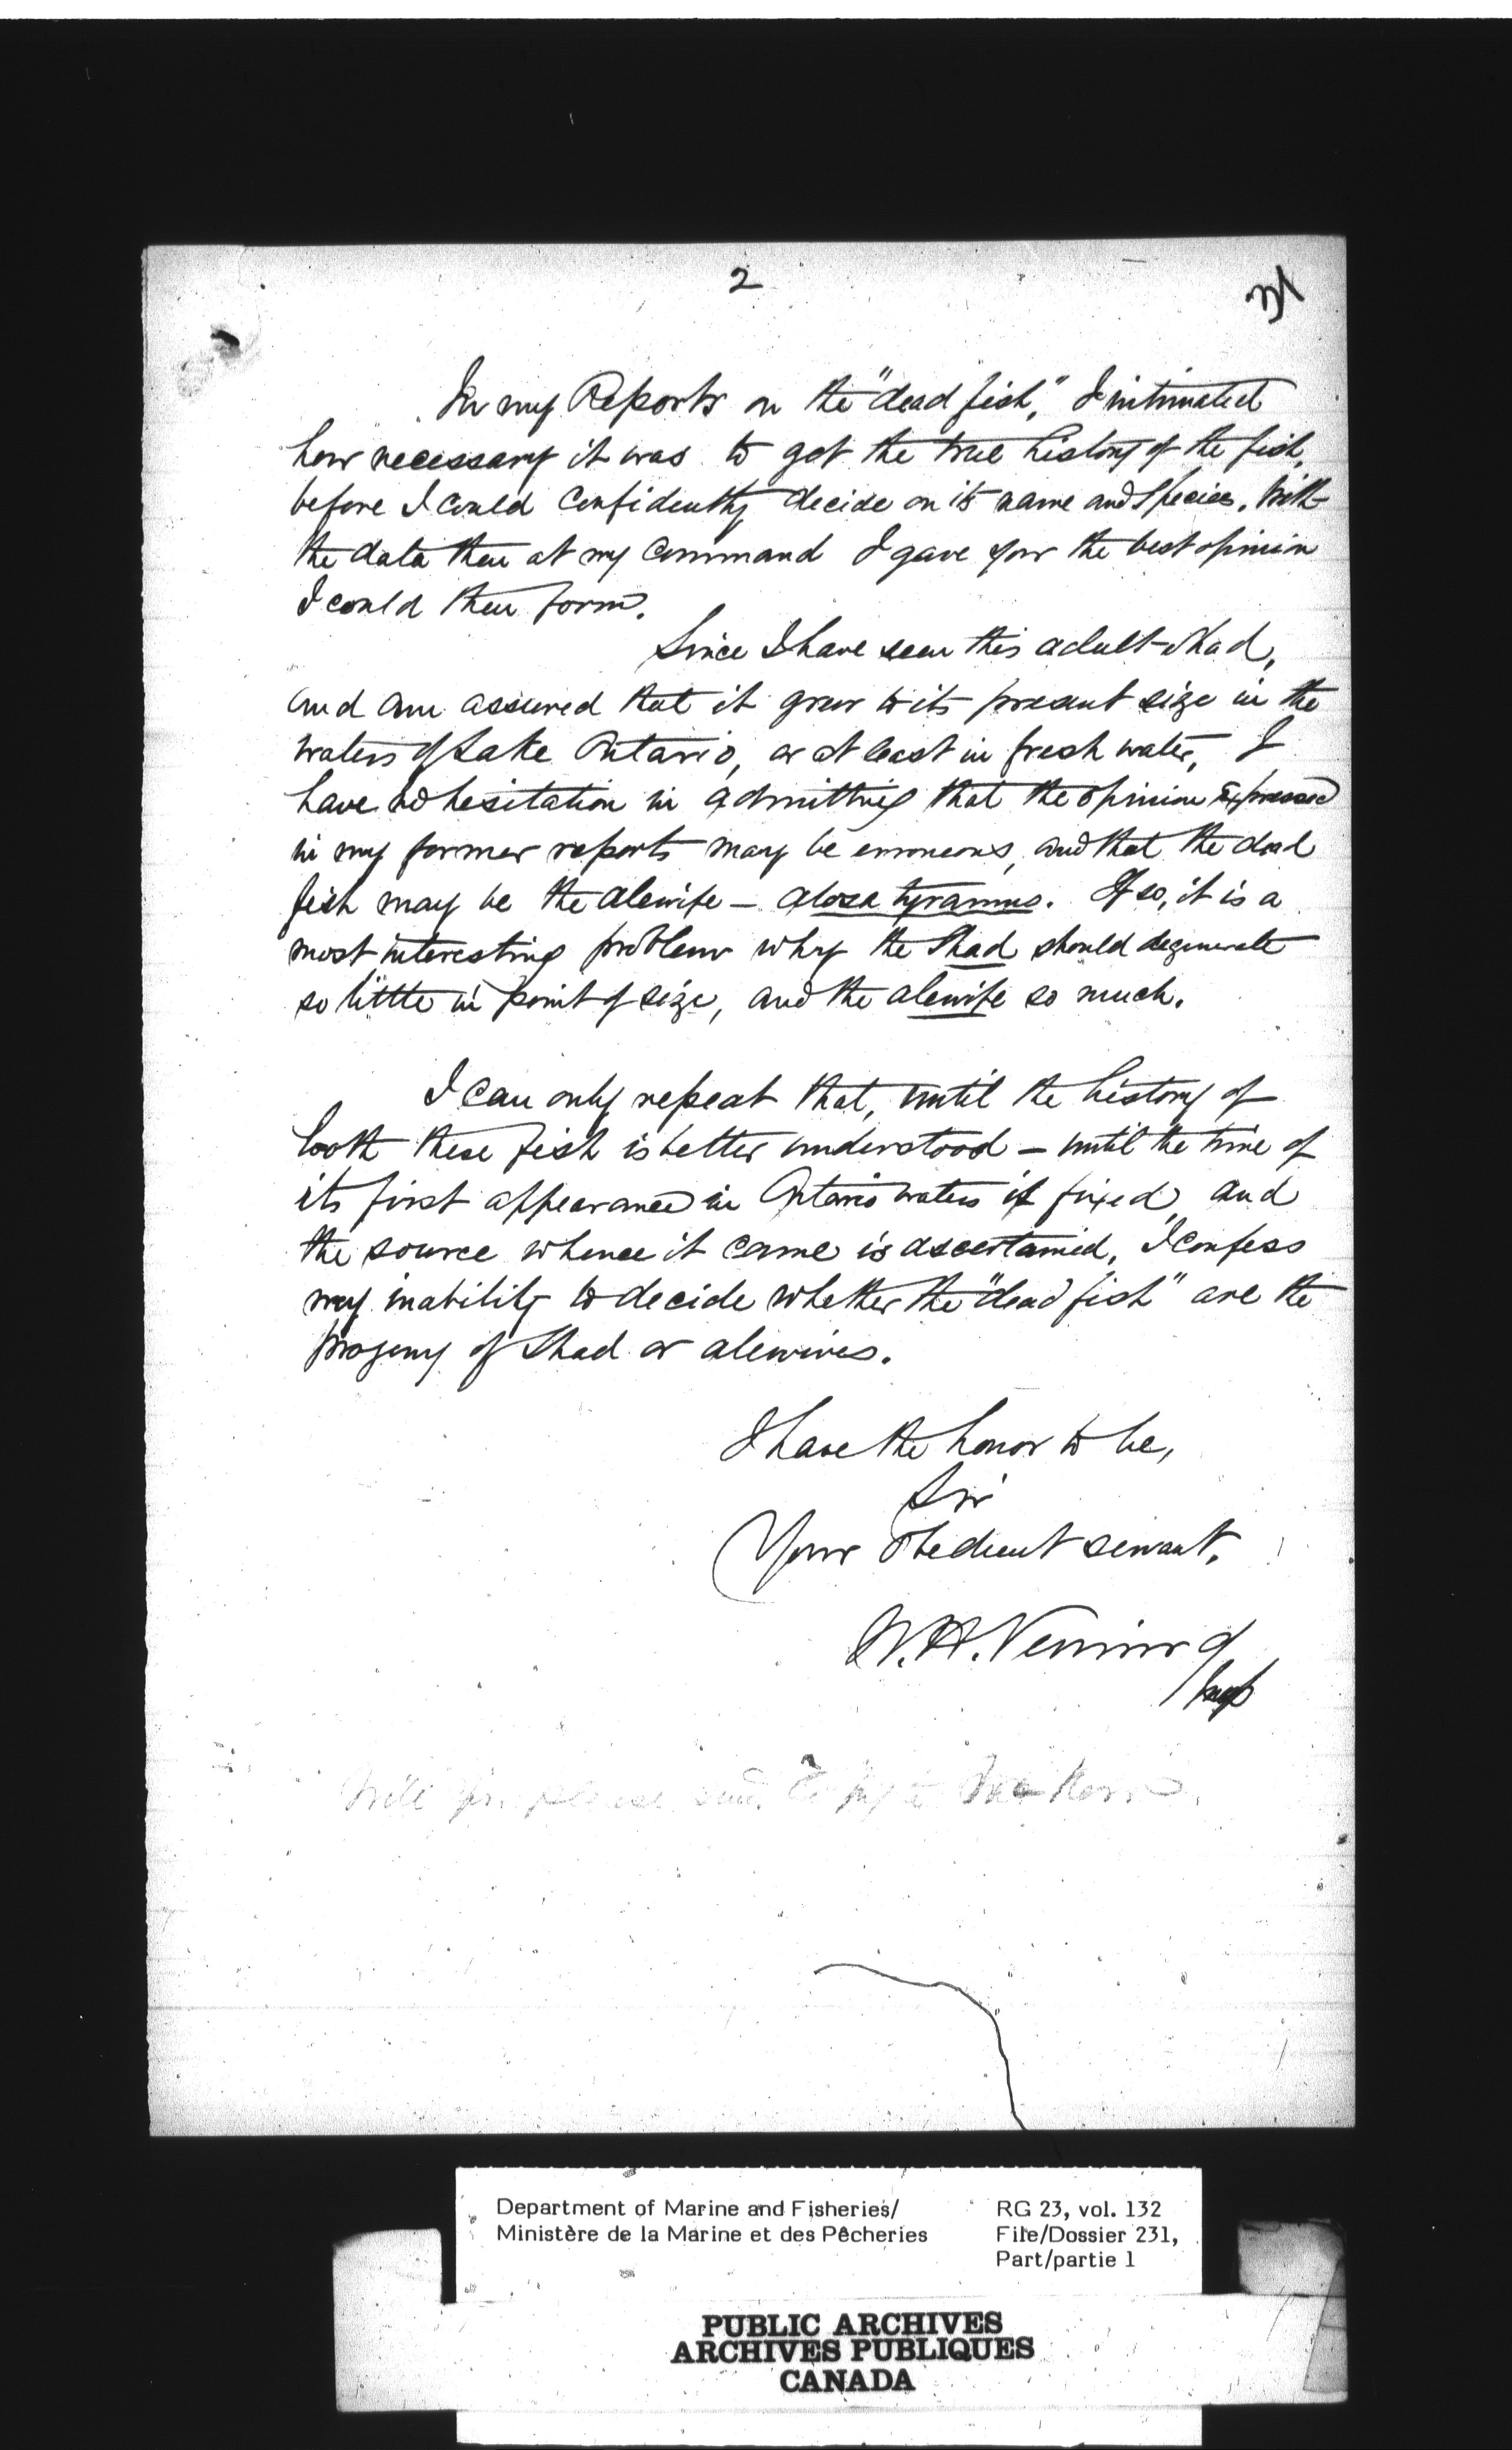 2
31
In my Reports on the "dead fish," I intimated
how necessary it was to get the true history of the fish,
before I could confidently decide on its name and species. With
the data then at my command I gave you the best opinion
I could then form.
Since I have seen this adult Shad,
and am assured that it grew to its present size in the
waters of Lake Ontario, or at least in fresh water, I
have no hesitation in admitting that the opinion expressed
in my former reports may be erroneous, and that the dead
fish may be the alewife — alosa tyrannus. If so, it is a
most interesting problem why the Shad should degenerate
so little in point of size, and the alewife so much.
I can only repeat that, until the history of
both these fish is better understood — until the time of
its first appearance in Ontario waters is fixed, and
the source whence it came is ascertained, I confess
my inability to decide whether the "dead fish" are the
progeny of Shad or alewives.
I have the honor to be,
Sir
Your obedient servant,
W.H. Venning
Insp
Will you please send copy to
Department of Marine and Fisheries/
Ministère de la Marine et des Pêcheries
RG 23, vol. 132
File/Dossier 231,
Part/partie 1
PUBLIC ARCHIVES
ARCHIVES PUBLIQUES
CANADA